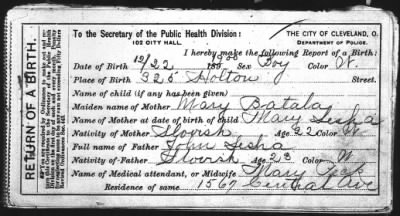 To the Secretary of the Public Health Division: THE CITY OF CLEVELAND, O.
102 CITY HALL. DEPARTMENT OF POLICE.
I hereby make the following Report of a Birth:
Date of Birth 12/22 1900 Sex Boy Color W.
Place of Birth 325 Holton Street.
Name of child (if any has been given)
Maiden name of Mother Mary Batala
Name of Mother at date of birth of child Mary Sesha
Nativity of Mother Sloversh Age 22 Color W
Full name of Father John Sesha
Nativity of Father Sloversh Age 28 Color W
Name of Medical attendant, or Midwife Mary Pack
Residence of same 1567 Central Ave
RETURN OF A BIRTH.